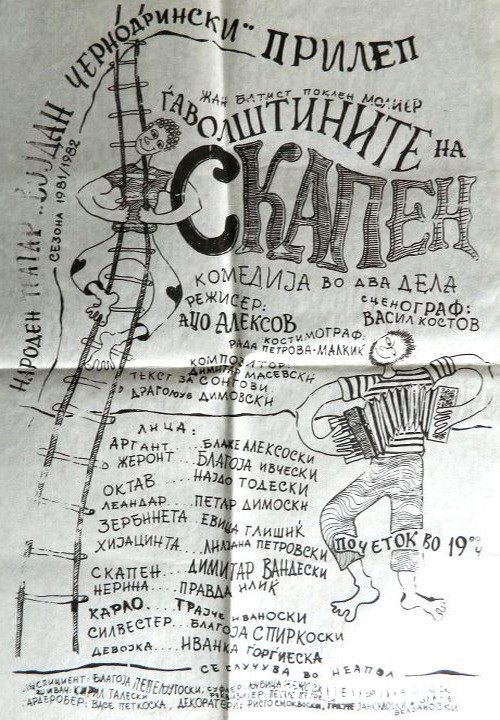 НАРОДЕН ТЕАТАР „ВОЈДАН ЧЕРНОДРИНСКИ" ПРИЛЕП
СЕЗОНА 1981/1982
ЖАН БАТИСТ ПОКЛЕН МОЛИЕР
ЃАВОЛШТИНИТЕ НА
СКАПЕН
КОМЕДИЈА ВО ДВА ДЕЛА
РЕЖИСЕР:
АЦО АЛЕКСОВ
СЦЕНОГРАФ:
ВАСИЛ КОСТОВ
КОСТИМОГРАФ:
РАДА ПЕТРОВА-МАЛКИЌ
КОМПОЗИТОР:
ДИМИТАР МАСЕВСКИ
ТЕКСТ ЗА СОНГОВИ
ДРАГОЉУБ ДИМОВСКИ
ЛИЦА:
АРГАНТ.....БЛАЖЕ АЛЕКСОСКИ
ЖЕРОНТ...БЛАГОЈА ИВЧЕСКИ
ОКТАВ....НАЈДО ТОДЕСКИ
ЛЕАНДАР...ПЕТАР ДИМОСКИ
ЗЕРБИНЕТА ЕВИЦА ГЛИШИЌ
ХИЈАЦИНТА...ЛИЛЈАНА ПЕТРОВСКИ
ПОЧЕТОК ВО 19⁰⁰ Ч
СКАПЕН...ДИМИТАР ВАНДЕСКИ
НЕРИНА...ПРАВДА ИЛИЌ
КАРЛО....ТРАЈЧЕ ИВАНОСКИ
СИЛВЕСТЕР...БЛАГОЈА СПИРКОСКИ
ДЕВОЈКА....ИВАНКА ЃОРГИЕСКА
СЕ СЛУЧУВА ВО НЕАПОЛ
БЛАГОЈА ПЕПЕЉУГОСКИ,
КИРИЛ ТАЛЕСКИ
ГАРДЕРОБЕР: ВАСЕ ПЕТКОСКА, ДЕКОРАТЕРИ: РИСТО СМОКВОСКИ,